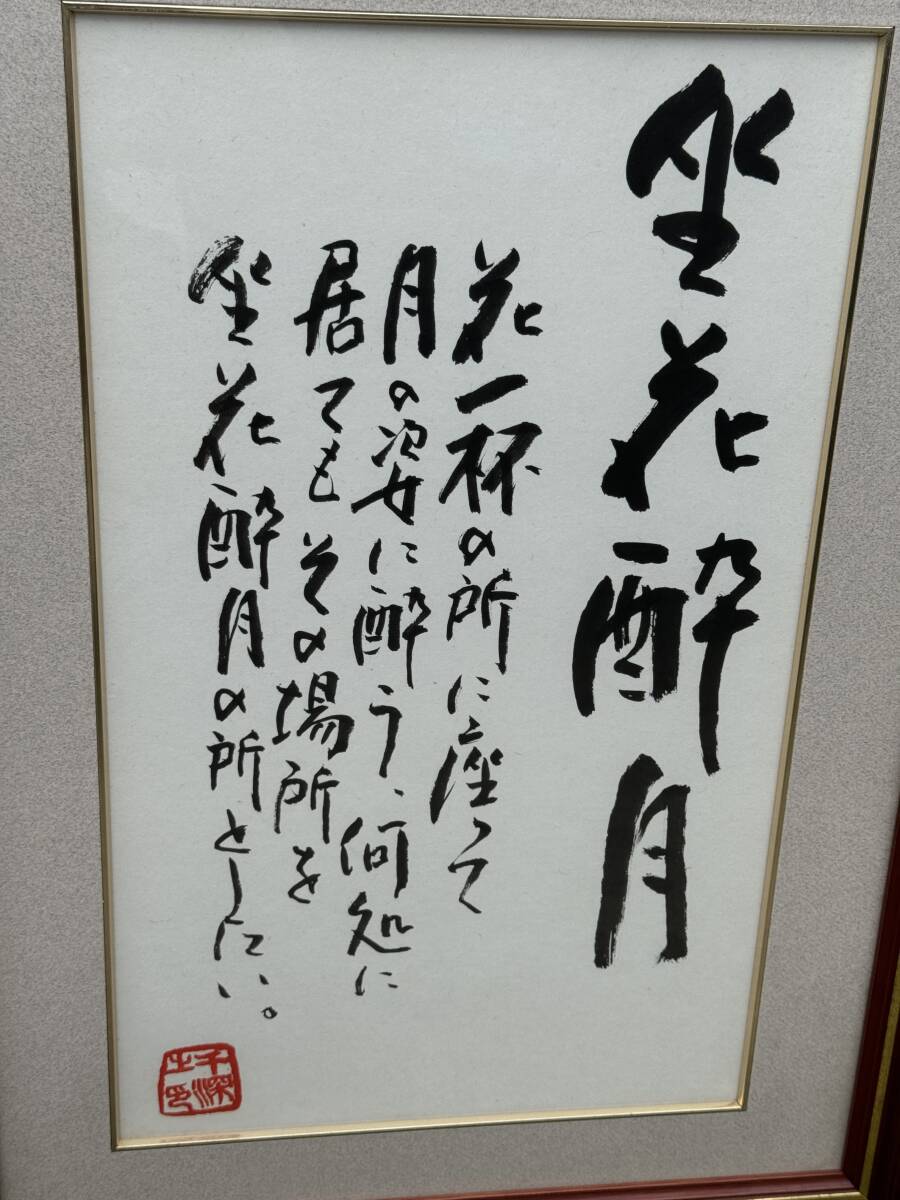 坐花酔月
花一杯の所に座って
月の姿に酔う、何処に
居てもその場所を
坐花酔月の所としたい。
千深之印